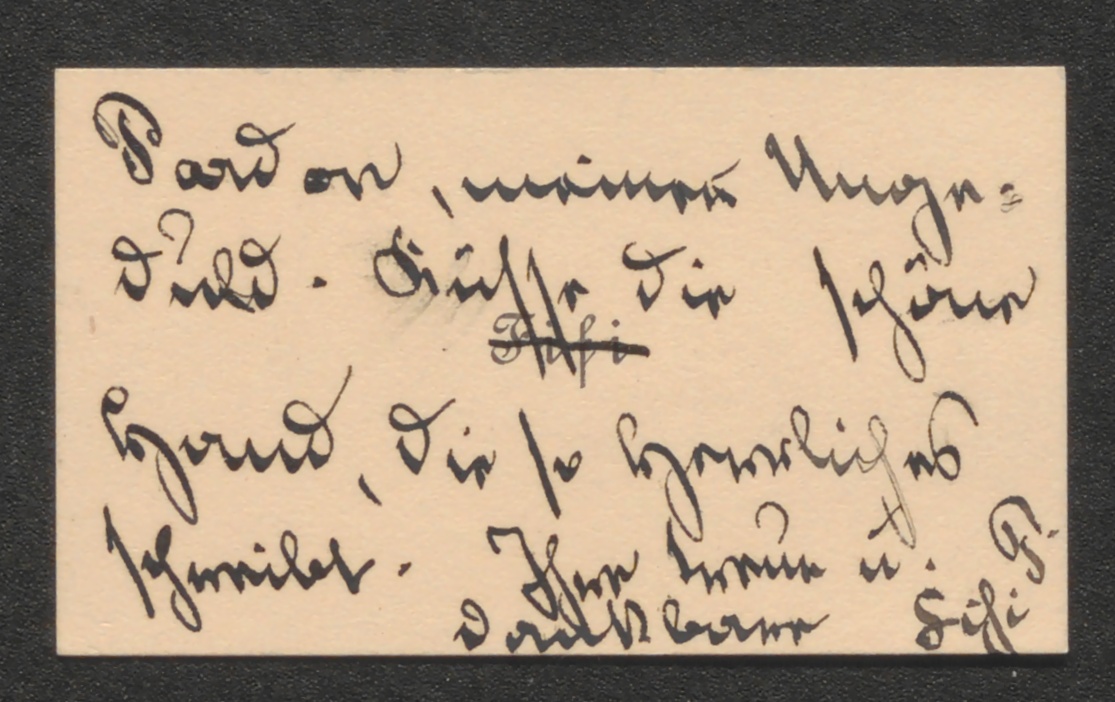 Pardon, meiner Unge-
duld. Küsse die schöne
Fifi
Hand, die so Herrliches
schreibt. Ihre treue u.
dankbare Fifi F.